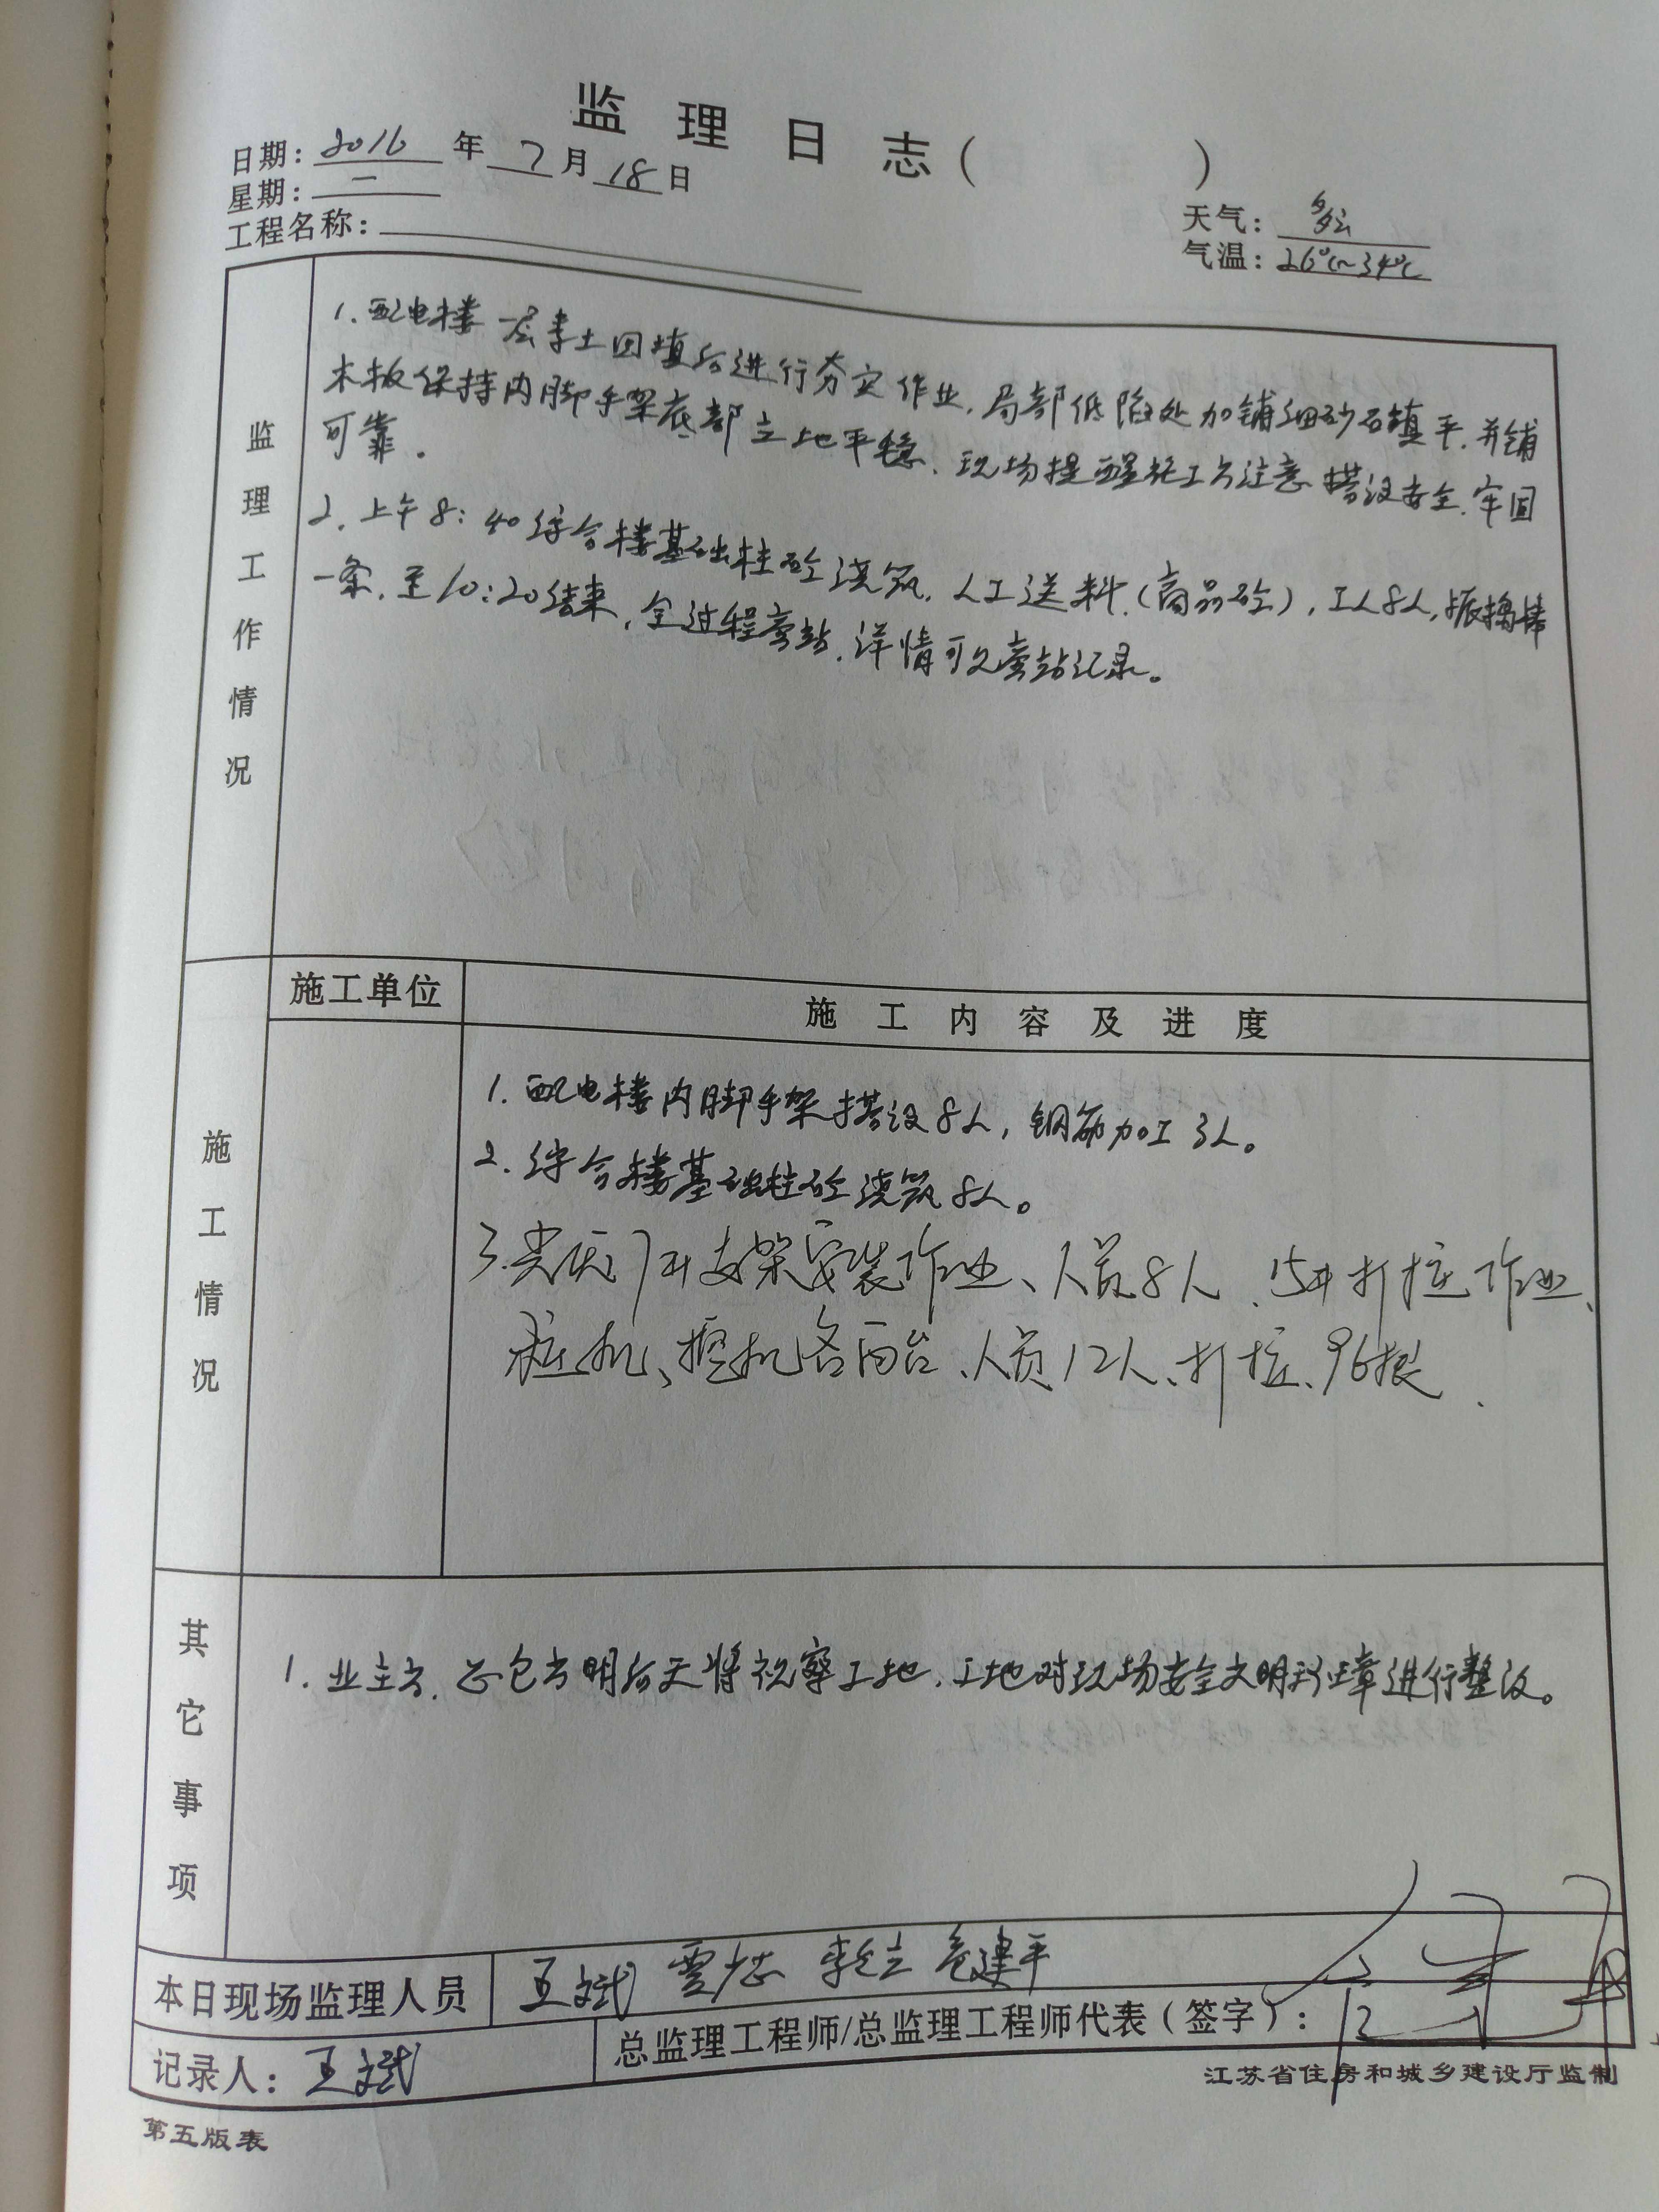 监理日志(        )
日期: 2016 年 7 月 18 日
星期: 一
天气: 多云
工程名称:
气温: 26℃~34℃
监理工作情况
1. 配电楼一层素土回填后进行夯实作业, 局部低陷处加铺细砂石填平, 并铺
木板保持内脚手架底部立地平稳, 现场提醒施工方注意搭设安全, 牢固
可靠。
2. 上午8:40综合楼基础柱砼浇筑, 人工送料(商品砼), 工人8人, 振捣棒
一条, 至10:20结束, 全过程旁站, 详情可见旁站记录。
施工情况
施工单位
施工内容及进度
1. 配电楼内脚手架搭设8人, 钢筋加工3人。
2. 综合楼基础柱砼浇筑8人。
3. 支架安装作业、人员8人、15# 打桩作业、
桩机、挖机各两台、人员12人、打桩、96根.
其它事项
1. 业主方、总包方明后天将视察工地, 工地对现场安全文明违章进行整改。
本日现场监理人员 王斌 建平
总监理工程师/总监理工程师代表(签字):
记录人: 王斌
江苏省住房和城乡建设厅监制
第五版表